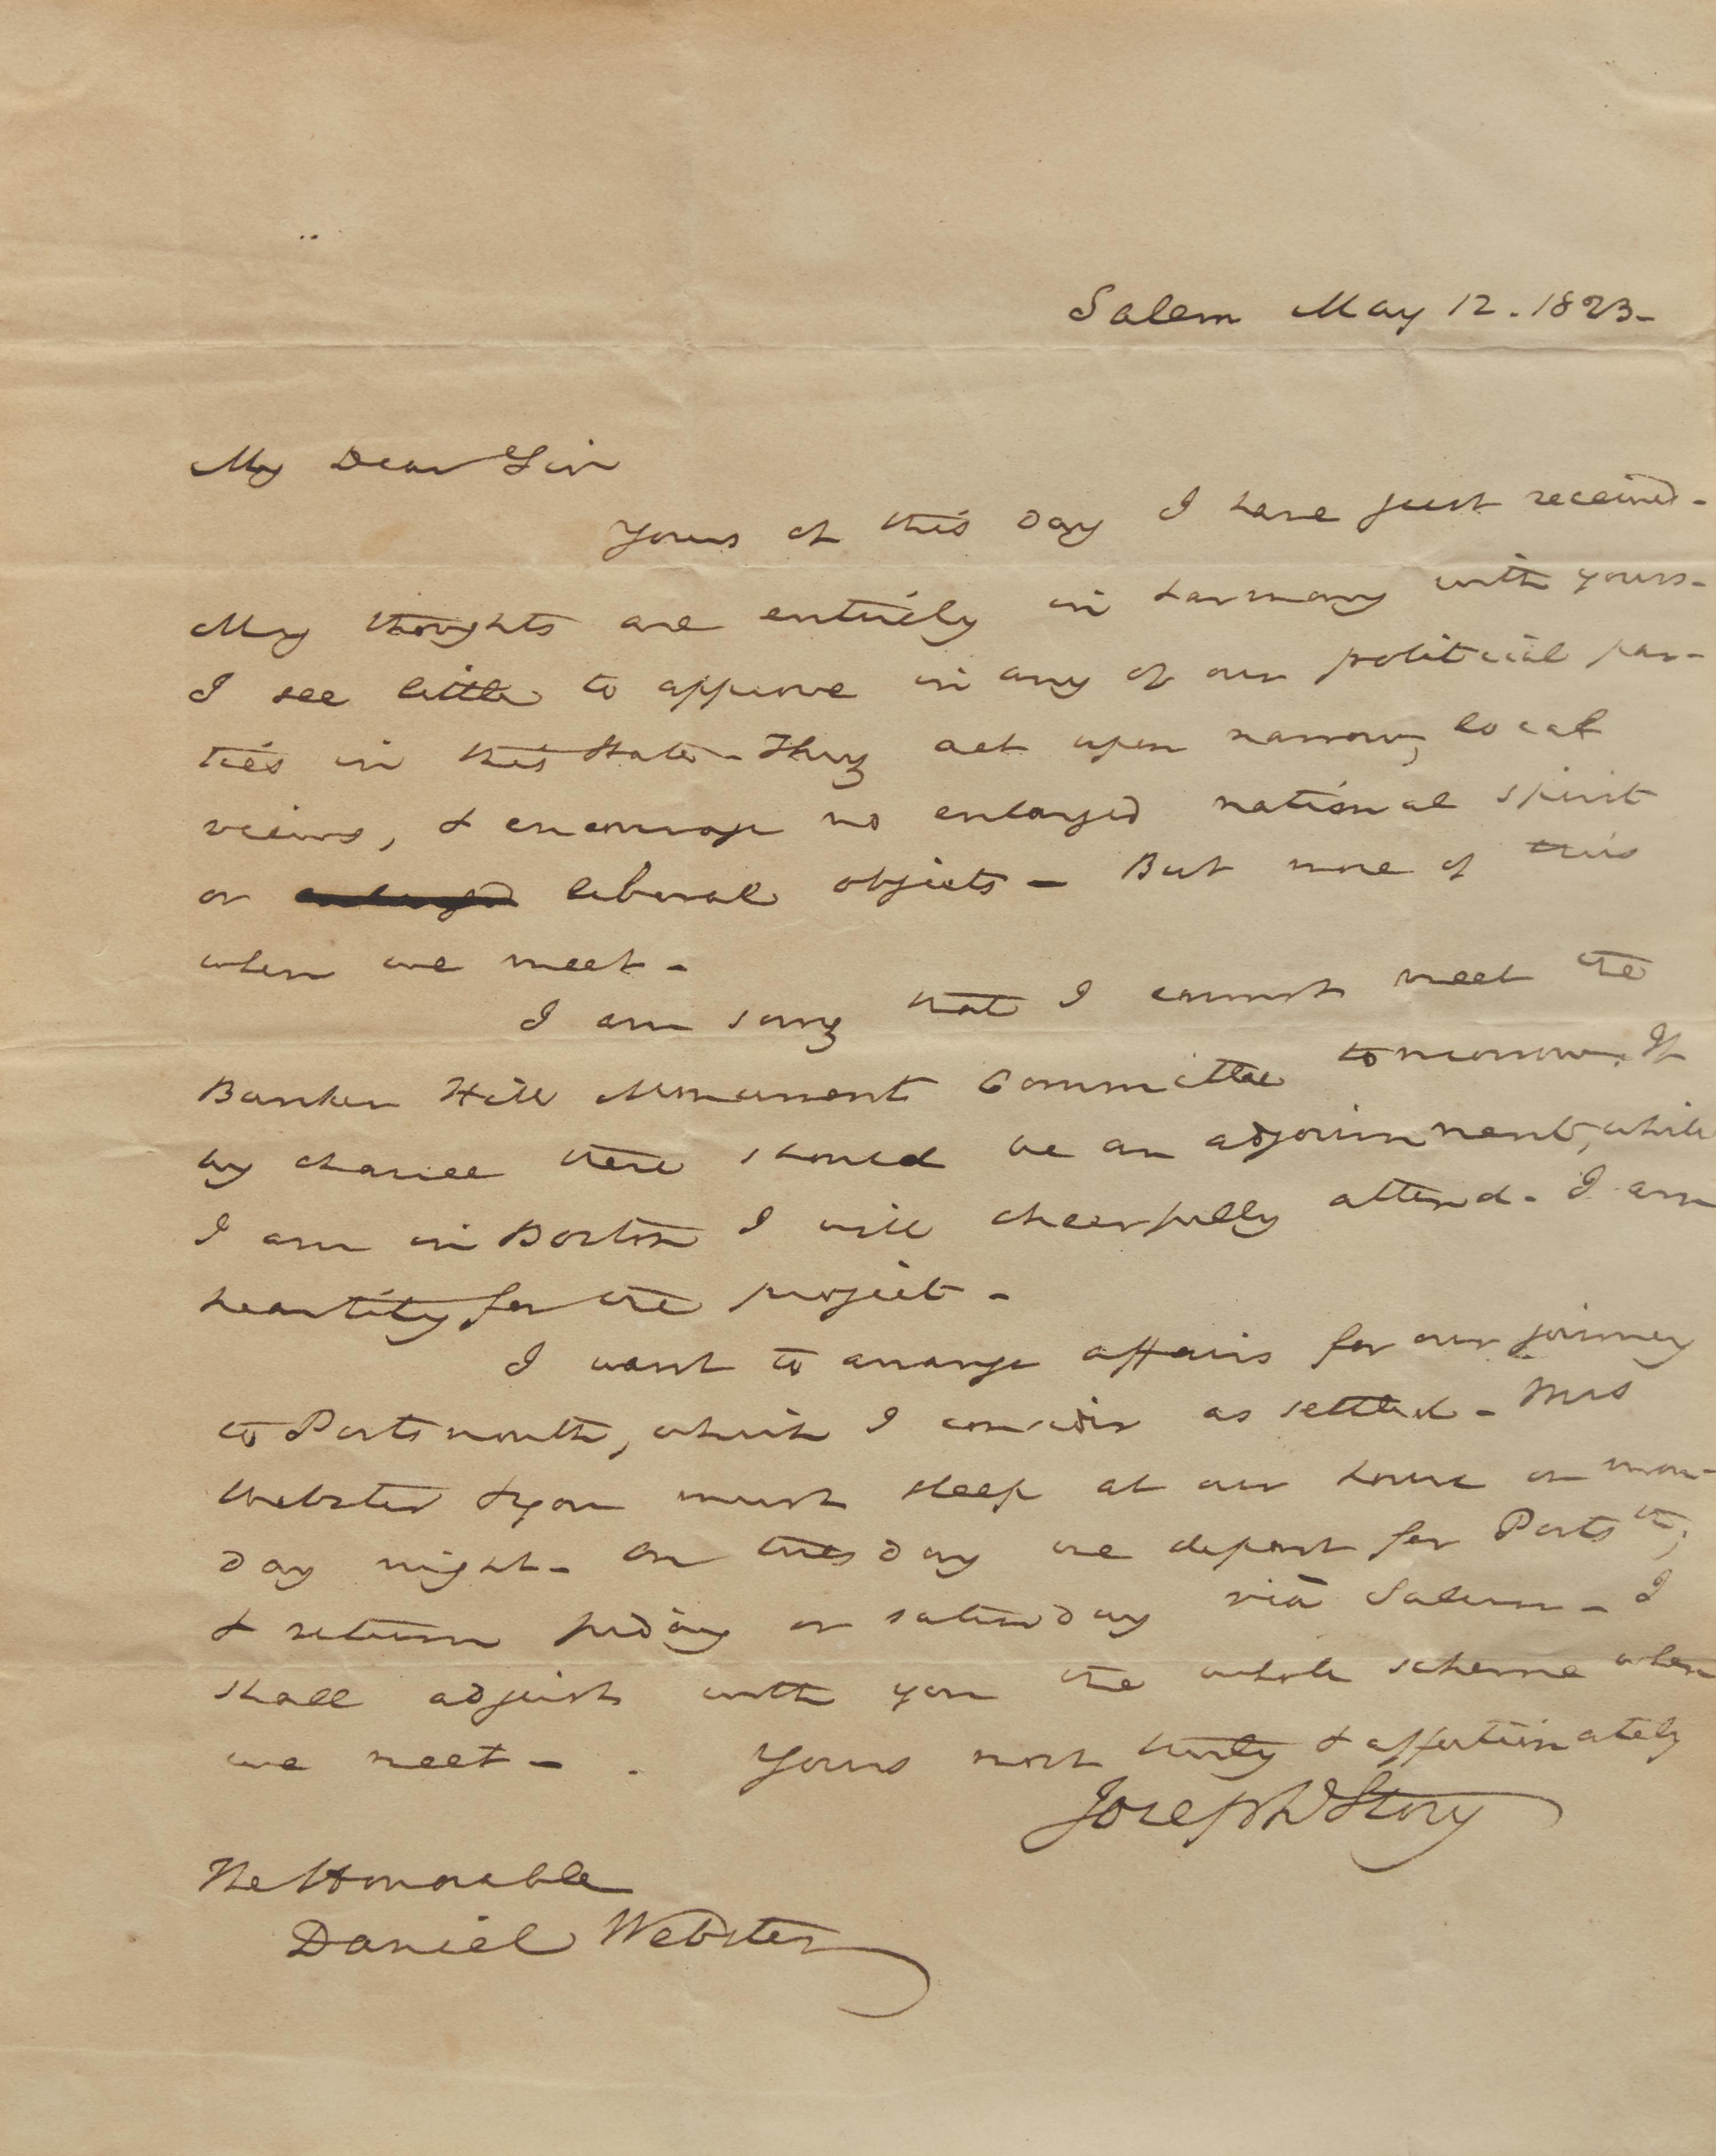 Salem May 12. 1823-
My Dear Sir
Yours of this day I have just received-
My thoughts are entirely in harmony with yours-
I see little to approve in any of our political par-
ties in this State - They act upon narrow, local
views, & encourage no enlarged national spirit
or liberal objects - But more of this
when we meet -
I am sorry that I cannot meet the
Bunker Hill Monument Committee tomorrow. If
by chance there should be an adjournment, while
I am in Boston I will cheerfully attend. I am
heartily for the project -
I want to arrange affairs for our journey
to Portsmouth, which I consider as settled - Mrs
Webster & you must sleep at our house on mon-
day night - On tuesday we depart for Ports th,
& return friday or saturday via Salem - I
shall adjust with you the whole scheme when
we meet - . Yours most truly & affectionately
Joseph Story
The Honorable
Daniel Webster